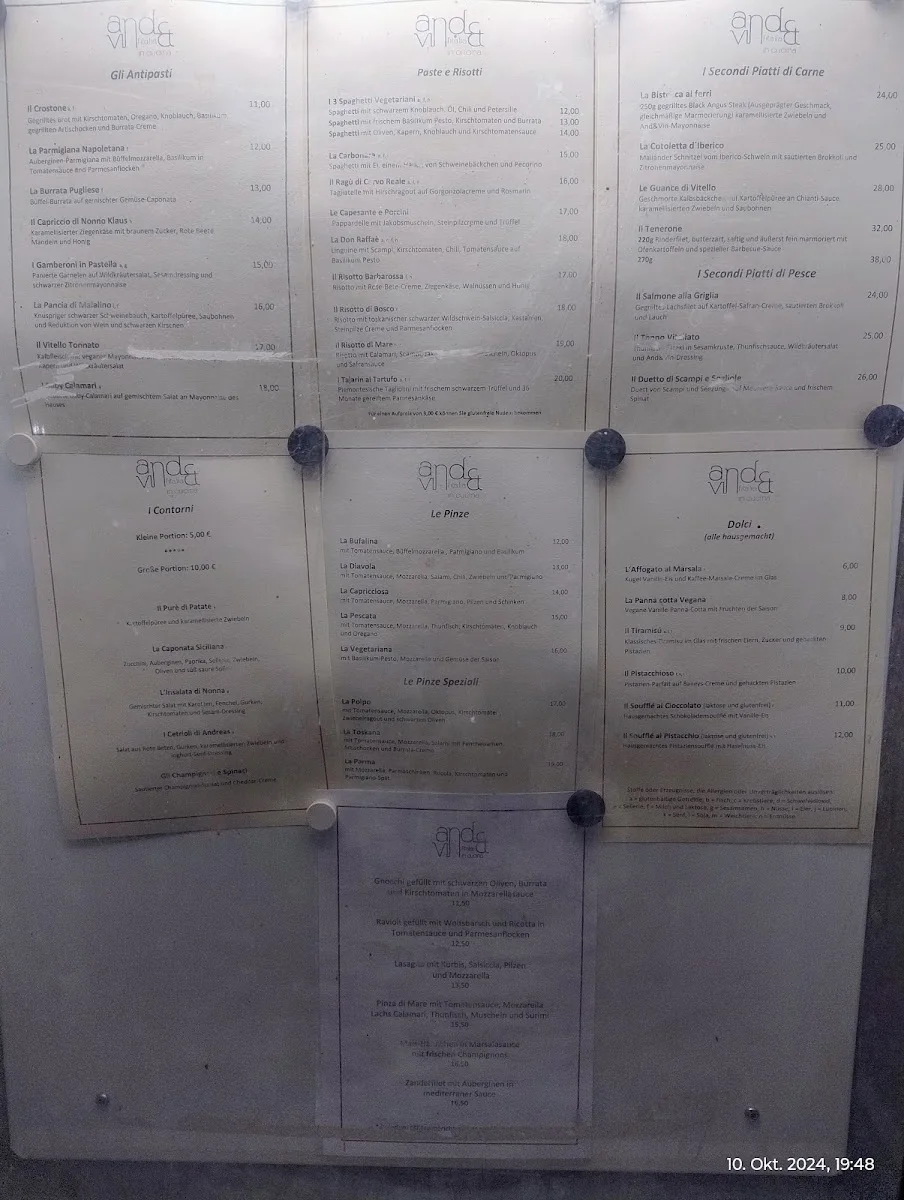 and
vin &
in cucina
Gli Antipasti
Il Crostone
11,00
Gegrilltes Brot mit Kirschtomaten, Oregano, Knoblauch,
gegrillten Artischocken und Burrata-Creme
La Parmigiana Napoletana
12,00
Auberginen-Parmigiana mit Büffelmozzarella, Basilikum in
Tomatensauce und Parmesanflocken
La Burrata Pugliese
13,00
Büffel-Burrata auf gemischter Gemüse-Caponata
Il Capriccio di Nonno Klaus
14,00
Karamellisierter Ziegenkäse mit braunem Zucker, Rote Beete
Mandeln und Honig
I Gamberoni in Pastella
15,00
Panierte Garnelen auf Wildkräutersalat, Sesam-Dressing und
schwarzer Zitronenmayonnaise
La Pancia di Maialino
16,00
Knuspriger schwarzer Schweinebauch, Kartoffelpüree, Saubohnen
und Reduktion von Wein und schwarzen Kirschen
Il Vitello Tonnato
17,00
Calamari
18,00
Baby-Calamari auf gemischtem Salat an Mayonnaise des
Hauses
and
vin &
in cucina
Paste e Risotti
I 3 Spaghetti Vegetariani
Spaghetti mit schwarzem Knoblauch, Öl, Chili und Petersilie 12,00
Spaghetti mit frischem Basilikum Pesto, Kirschtomaten und Burrata 13,00
Spaghetti mit Oliven, Kapern, Knoblauch und Kirschtomatensauce 14,00
La Carbonara
15,00
Spaghetti mit Ei, einem von Schweinebäckchen und Pecorino
Il Ragù di Cervo Reale
16,00
Tagliatelle mit Hirschragout auf Gorgonzolacreme und Rosmarin
Le Capesante e Porcini
17,00
Pappardelle mit Jakobsmuscheln, Steinpilzcreme und Trüffel
La Don Raffaè
18,00
Linguine mit Scampi, Kirschtomaten, Chili, Tomatensauce auf
Basilikum Pesto
Il Risotto Barbarossa
17,00
Risotto mit Rote-Bete-Creme, Ziegenkäse, Walnüssen und Honig
Il Risotto di Bosco
18,00
Risotto mit toskanischer schwarzer Wildschwein-Salsiccia, Kastanien,
Steinpilze Creme und Parmesanflocken
Il Risotto di Mare
19,00
Risotto mit Calamari, Scampi, Oktopus
und Safransauce
I Tajarin al Tartufo
20,00
Piemontesische Tagliolini mit frischem schwarzem Trüffel und 36
Monate gereiftem Parmesankäse
Für einen Aufpreis von 3,00 € können Sie glutenfreie Nudeln bekommen
and
vin &
in cucina
I Secondi Piatti di Carne
La Bistecca ai ferri
24,00
250g gegrilltes Black Angus Steak (Ausgeprägter Geschmack,
gleichmäßige Marmorierung) karamellisierte Zwiebeln und
And&Vin-Mayonnaise
La Cotoletta d'Iberico
25,00
Mailänder Schnitzel vom Iberico-Schwein mit sautierten Brokkoli und
Zitronenmayonnaise
Le Guance di Vitello
28,00
Geschmorte Kalbsbäckchen auf Kartoffelpüree an Chianti-Sauce,
karamellisierten Zwiebeln und Saubohnen
Il Tenerone
32,00
220g Rinderfilet, butterzart, saftig und äußerst fein marmoriert mit
Ofenkartoffeln und spezieller Barbecue-Sauce
270g
38,00
I Secondi Piatti di Pesce
Il Salmone alla Griglia
24,00
Gegrilltes Lachsfilet auf Kartoffel-Safran-Creme, sautierten Brokkoli
und Lauch
Il Tonno
25,00
in Sesamkruste, Thunfischsauce, Wildkräutersalat
und And& Vin-Dressing
Il Duetto di Scampi e Sogliole
26,00
Duett von Scampi und Seezunge auf und frischem
Spinat
and
vin &
in cucina
I Contorni
Kleine Portion: 5,00 €
*****
Große Portion: 10,00 €
Il Purè di Patate
Kartoffelpüree und karamellisierte Zwiebeln
La Caponata Siciliana
Zucchini, Auberginen, Paprika, Sellerie, Zwiebeln,
Oliven und süß saure Soße
L'Insalata di Nonna
Gemischter Salat mit Karotten, Fenchel, Gurken,
Kirschtomaten und Sesam-Dressing
I Cetrioli di Andreas
Salat aus Rote Beten, Gurken, karamellisierten Zwiebeln und
Joghurt-Dressing
Gli Champignon e Spinaci
Sautierter Champignons-Spinat und Cheddar-Creme
and
vin &
in cucina
Le Pinze
La Bufalina
12,00
mit Tomatensauce, Büffelmozzarella, Parmigiano und Basilikum
La Diavola
13,00
mit Tomatensauce, Mozzarella, Salami, Chili, Zwiebeln und Parmigiano
La Capricciosa
14,00
mit Tomatensauce, Mozzarella, Parmigiano, Pilzen und Schinken
La Pescata
15,00
mit Tomatensauce, Mozzarella, Thunfisch, Kirschtomaten, Knoblauch
und Oregano
La Vegetariana
16,00
mit Basilikum-Pesto, Mozzarella und Gemüse der Saison
Le Pinze Speziali
La Polpo
17,00
mit Tomatensauce, Mozzarella, Oktopus, Kirschtomaten
und schwarzen Oliven
La Toskana
18,00
mit Tomatensauce, Mozzarella, Salami mit Fenchelsamen,
Artischocken und Burrata-Creme
La Parma
19,00
mit Mozzarella, Parmaschinken, Rucola, Kirschtomaten und
Parmigiano
and
vin &
in cucina
Dolci
(alle hausgemacht)
L'Affogato al Marsala
6,00
Kugel Vanille-Eis und Kaffee-Marsala-Creme im Glas
La Panna cotta Vegana
8,00
Vegane Vanille-Panna-Cotta mit Früchten der Saison
Il Tiramisù
9,00
Klassisches Tiramisù im Glas mit frischen Eiern, Zucker und gehackten
Pistazien
Il Pistacchioso
10,00
Pistazien-Parfait auf Baileys-Creme und gehackten Pistazien
Il Soufflé al Cioccolato (laktose und glutenfrei)
11,00
Hausgemachtes Schokoladensoufflé mit Vanille-Eis
Il Soufflé al Pistacchio (laktose und glutenfrei)
12,00
Hausgemachtes Pistaziensoufflé mit Haselnuss-Eis
Stoffe oder Erzeugnisse, die Allergien oder Unverträglichkeiten auslösen:
and
vin &
in cucina
Gnocchi gefüllt mit schwarzen Oliven, Burrata
und Kirschtomaten in Mozzarellasauce
11,50
Ravioli gefüllt mit Wolfsbarsch und Ricotta in
Tomatensauce und Parmesanflocken
12,50
Lasagna mit Kürbis, Salsiccia, Pilzen
und Mozzarella
13,50
Pinza di Mare mit Tomatensauce, Mozzarella
Lachs Calamari, Thunfisch, Muscheln und Surimi
15,50
in Marsalasauce
mit frischen Champignons
Zanderfilet mit Auberginen in
mediterraner Sauce
16,50
10. Okt. 2024, 19:48